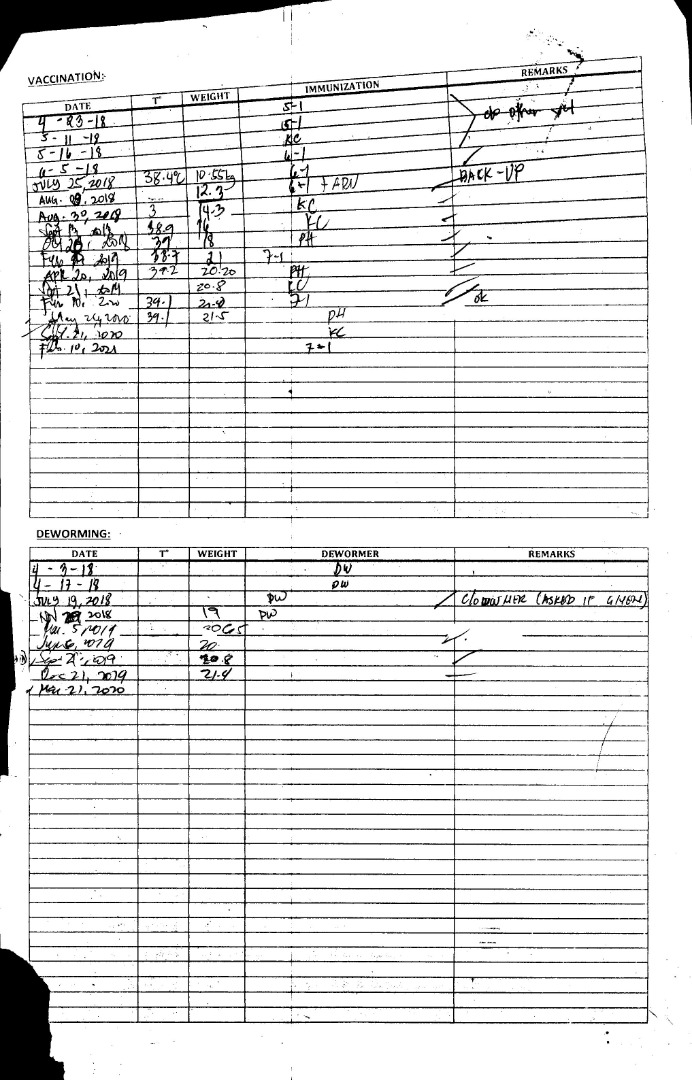 VACCINATION:
DATE T° WEIGHT IMMUNIZATION REMARKS
4 - 23 - 18 5-1
5 - 11 - 18 5-1 c/o other vet
5 - 16 - 18 KC
6 - 5 - 18 6-1
JULY 25, 2018 38.4°C 10.55kg 6-1 BACK-UP
AUG. 09, 2018 12.3 6-1 + ADV
Aug. 30, 2018 3 14.3 KC
Sept 13, 2018 38.9 16 KC
Oct 2018 39 18 PH
Feb 2019 38.7 21 7-1
APR 20, 2019 39.2 20.20 PH
Sept 21, 2019 20.8 KC
Feb 10, 2020 39.1 21.8 7-1 ok
May 24, 2020 39.1 21.5 PH
Sept. 21, 2020 KC
Feb. 10, 2021 7-1
DEWORMING:
DATE T° WEIGHT DEWORMER REMARKS
4 - 3 - 18 DW
4 - 17 - 18 DW
JULY 19, 2018 DW C/O OWNER (ASKED IF GIVEN)
2018 19 DW
Mar. 5, 2019 20.65
June 6, 2019 20
Sept 21, 2019 20.8
Dec 21, 2019 21.4
Mar 21, 2020